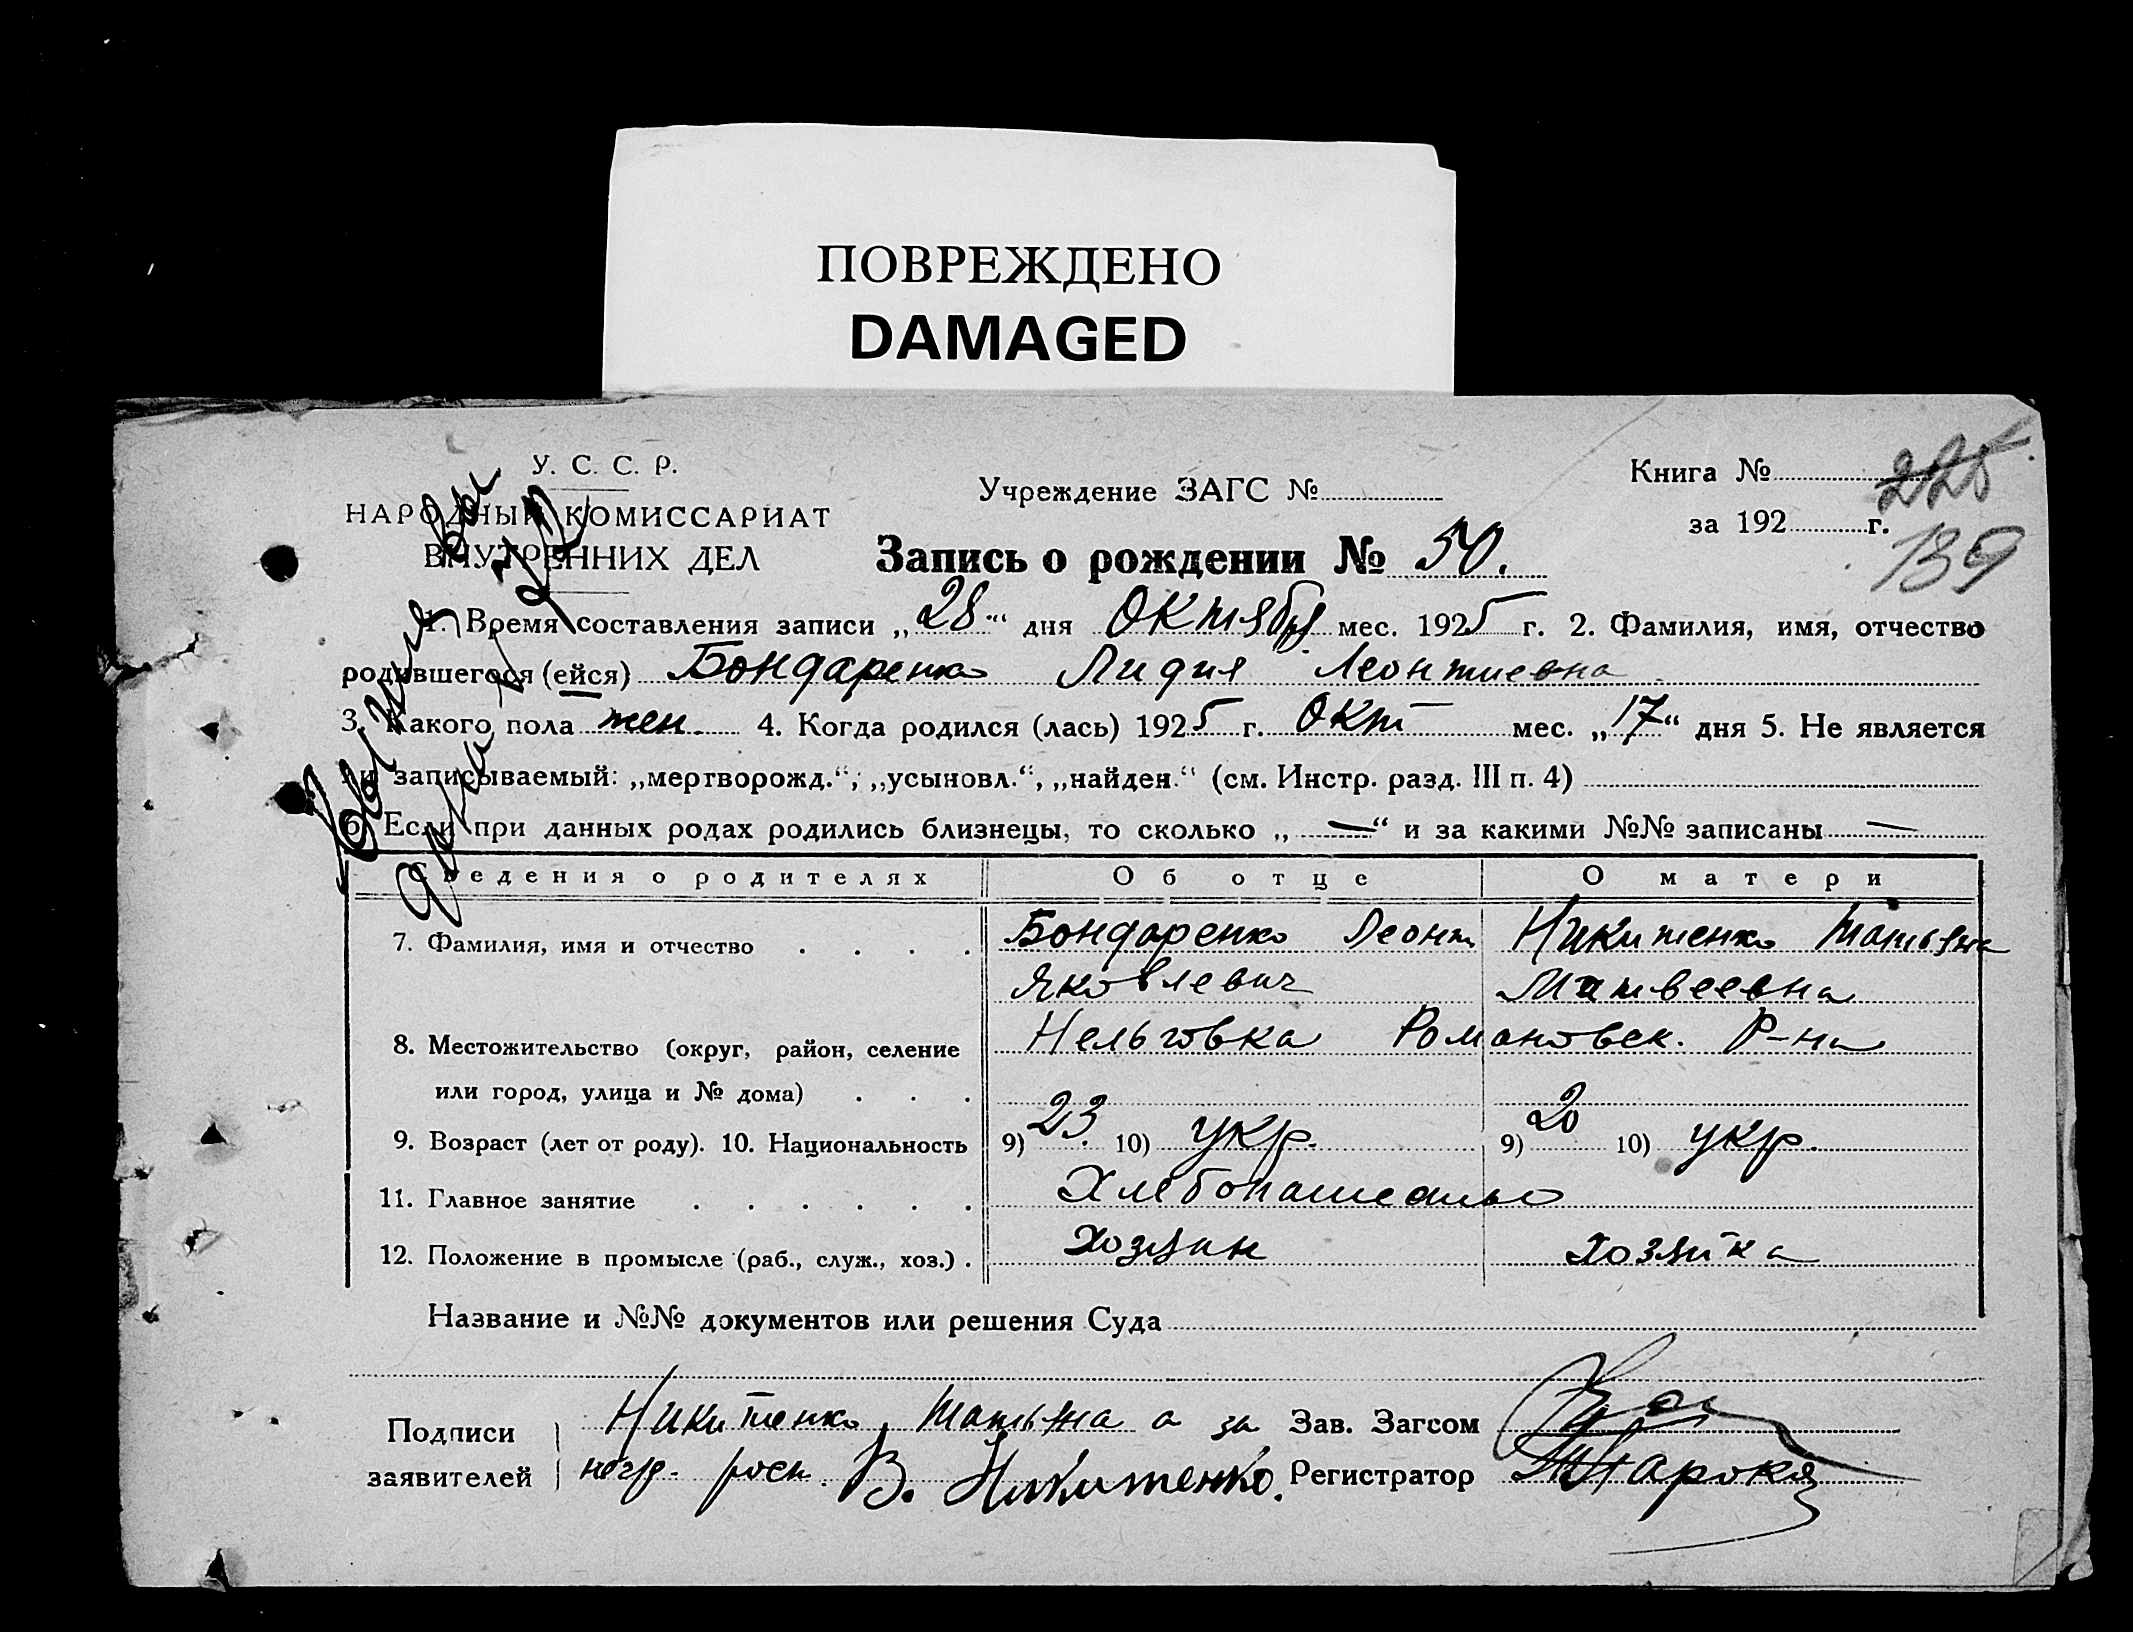 ПОВРЕЖДЕНО
DAMAGED
У. С. С. Р.
НАРОДНЫЙ КОМИССАРИАТ
ВНУТРЕННИХ ДЕЛ
Учреждение ЗАГС №
Книга № 225
за 192 г.
139
Запись о рождении № 50.
1. Время составления записи „28“ дня Октябр мес. 1925 г. 2. Фамилия, имя, отчество
родившегося (ейся) Бондаренко Лидия Леонтиевна
3. Какого пола жен. 4. Когда родился (лась) 1925 г. Окт мес. „17“ дня 5. Не является
ли записываемый: „мертворожд.“; „усыновл.“, „найден.“ (см. Инстр. разд. III п. 4)
6. Если при данных родах родились близнецы, то сколько „ — “ и за какими №№ записаны —
Сведения о родителях Об отце О матери
7. Фамилия, имя и отчество . . . . Бондаренко Леонт Никитенко Татьяна
Яковлевич Матвеевна
8. Местожительство (округ, район, селение Нельговка Романовск. Р-на
или город, улица и № дома) . . .
9. Возраст (лет от роду). 10. Национальность 9) 23. 10) укр. 9) 20 10) укр.
11. Главное занятие . . . . . . Хлебопашество
12. Положение в промысле (раб., служ., хоз.) . Хозяин Хозяйка
Название и №№ документов или решения Суда
Подписи Никитенко Татьяна а за Зав. Загсом
заявителей негр. росп. В. Никитенко. Регистратор